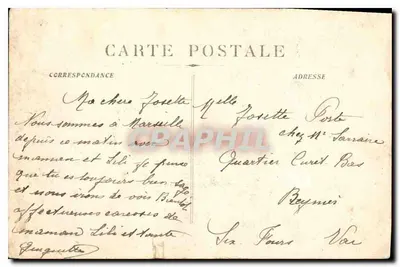 CARTE POSTALE
CORRESPONDANCE
ADRESSE
Ma chere Josette
Nous sommes à Marseille
depuis ce matin avec
maman et Lili Je pense
que tu es toujours bien sage
et nous irons de vois Bientot
affectueuses caresses de
maman Lili et tante
Melle
Josette Porte
chez Mr
Quartier Curet Bas
Six Fours Var
CPAPHIL